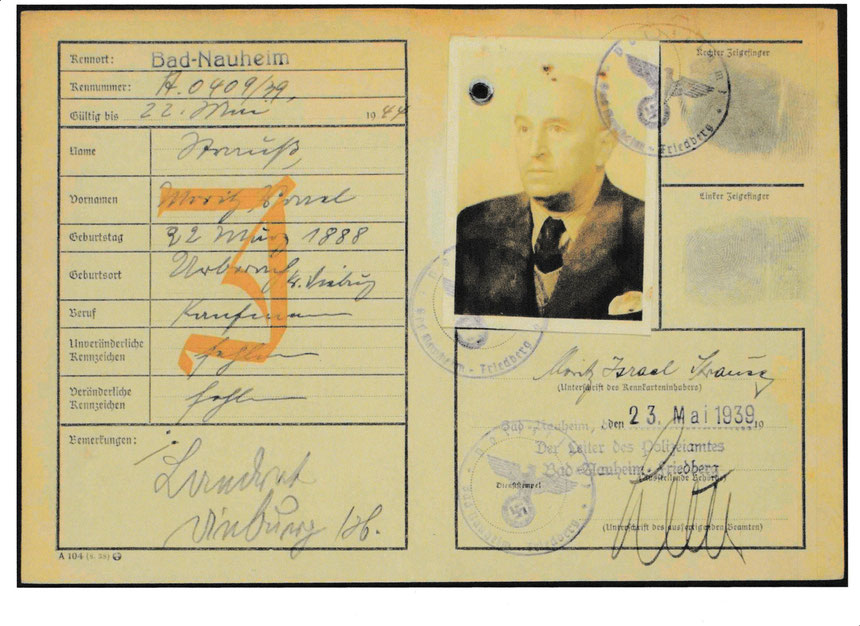 Kennort: Bad-Nauheim
Kennummer: A.0409/39.
Gültig bis 22. Mai 1944
Name Strauß,
Vornamen Moritz Israel
Geburtstag 22 März 1888
Geburtsort Urberach Kr. Dieburg
Beruf Kaufmann
Unveränderliche Kennzeichen fehlen
Veränderliche Kennzeichen fehlen
Bemerkungen:
Landrat
Dieburg
J
A 104
Rechter Zeigefinger
Linker Zeigefinger
Moritz Israel Strauss
(Unterschrift des Kennkarteninhabers)
Bad-Nauheim, den 23. Mai 1939 19
Der Leiter des Polizeiamtes
Bad Nauheim-Friedberg
(Ausstellende Behörde)
Dienststempel
(Unterschrift des ausfertigenden Beamten)
Bad Nauheim - Friedberg
Bad Nauheim - Friedberg
Bad Nauheim - Friedberg